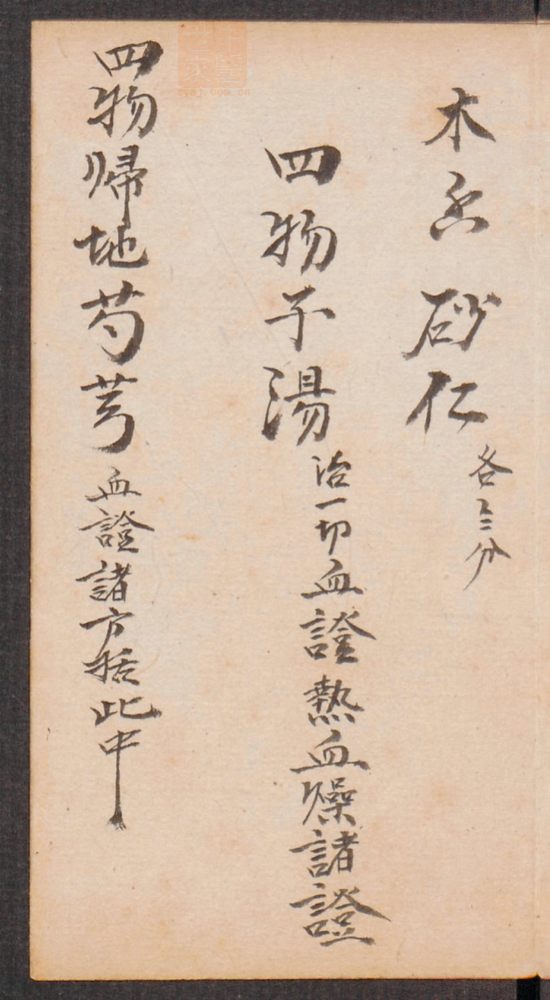 木香 砂仁 各三分
四物子湯 治一切血證熱血燥諸證
四物歸地芍芎 血證諸方括此中